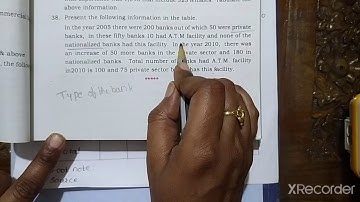 above.
38. Present the following information in the table
In the year 2005 there were 200 banks out of which 50 were private
banks, in these fifty banks 10 had A.T.M facility and none of the
nationalized banks had this facility. In the year 2010, there was
an increase of 50 more banks in the private sector and 180 in
nationalized banks. Total number of banks had A.T.M. facility
in2010 is 100 and 75 private sector has this facility.
*****
Type of the bank
& above
note
source
XRecorder